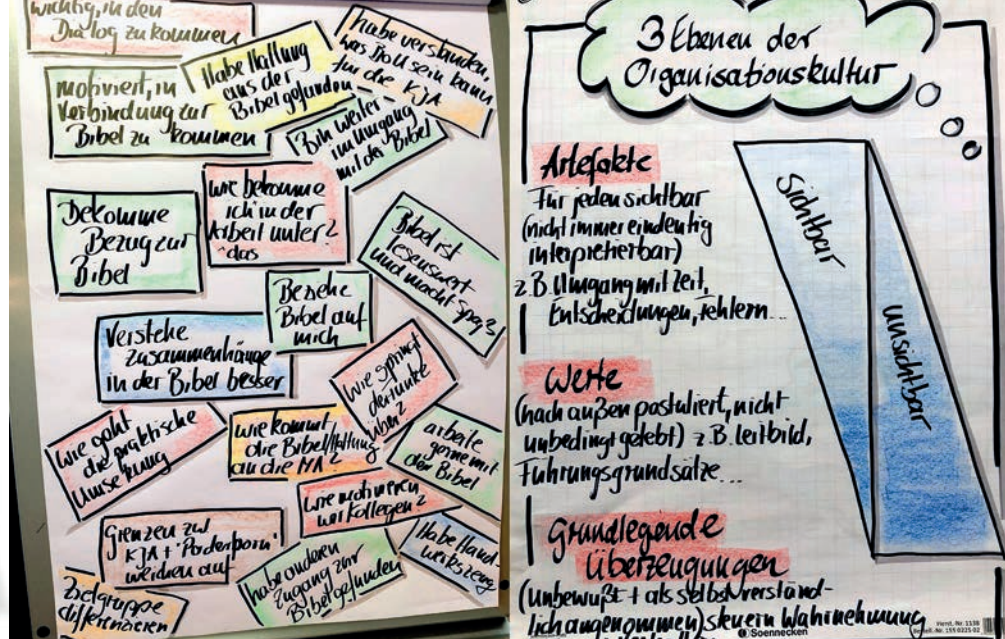 wichtig, in den
Dialog zu kommen
motiviert, in
Verbindung zur
Bibel zu kommen
Habe Haltung
aus der
Bibel gefunden
habe verstanden,
was toll sein kann
für die KJA
Bin weiter
im Umgang
mit der Bibel
Bekomme
Bezug zur
Bibel
wie bekomme
ich in der
Arbeit unter?
das
Bibel ist
lesenswert
und macht Spaß!
Beziehe
Bibel auf
mich
Verstehe
Zusammenhänge
in der Bibel besser
wie springt
der Funke
über?
wie geht
die praktische
Umsetzung
wie kommt
die Bibel/Haltung
an die MA?
arbeite
gerne mit
der Bibel
wie motivieren
wir Kollegen?
Grenzen zu
KJA + "Paderborn"
weichen auf
habe anderen
Zugang zur
Bibel gefunden
Habe Hand-
werkszeug
Zielgruppe
differenzieren
3 Ebenen der
Organisationskultur
Artefakte
Für jeden sichtbar
(nicht immer eindeutig
interpretierbar)
z.B. Umgang mit Zeit,
Entscheidungen, Fehlern...
Werte
(nach außen postuliert, nicht
unbedingt gelebt) z.B. Leitbild,
Führungsgrundsätze...
Grundlegende
Überzeugungen
(Unbewußt + als selbstverständ-
lich angenommen) steuern Wahrnehmung
Sichtbar
unsichtbar
Soennecken